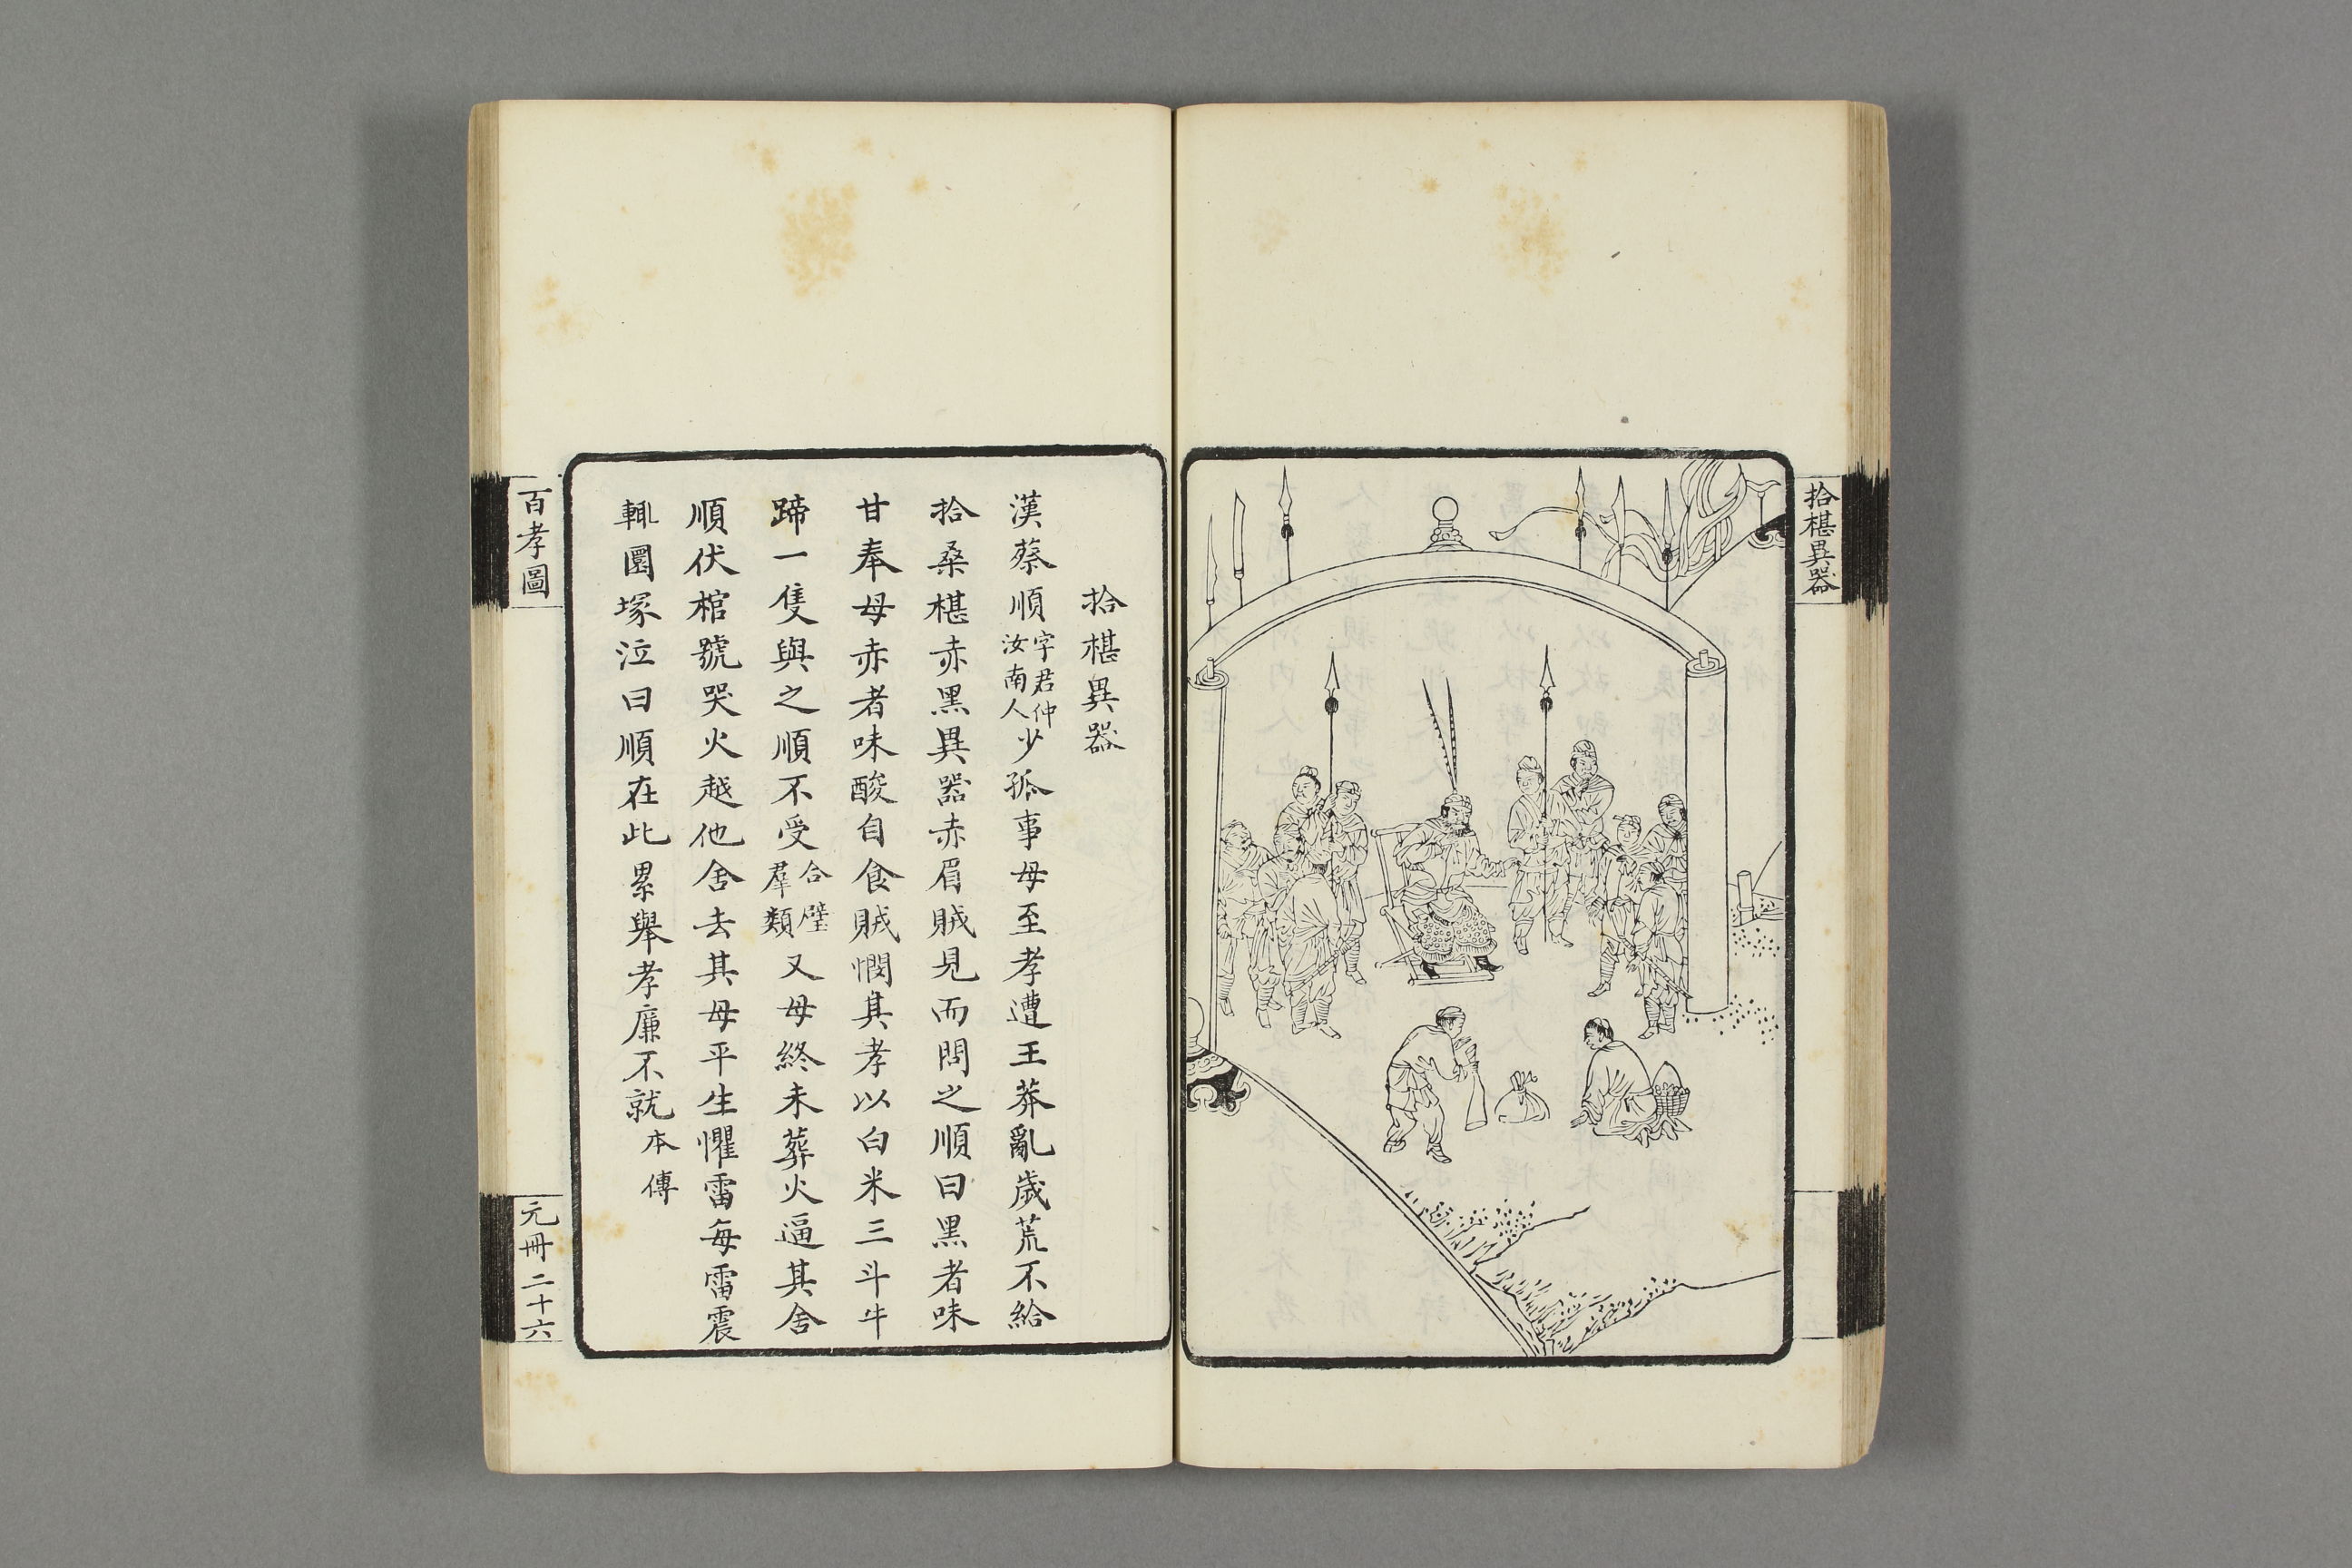 拾椹異器
拾椹異器
漢蔡順字君仲汝南人少孤事母至孝遭王莽亂歲荒不給
拾桑椹赤黑異器赤眉賊見而問之順曰黑者味
甘奉母赤者味酸自食賊憫其孝以白米三斗牛
蹄一隻與之順不受合璧羣類又母終未葬火逼其舍
順伏棺號哭火越他舍去其母平生懼雷每雷震
輒圜塚泣曰順在此累舉孝廉不就本傳
百孝圖
元冊二十六